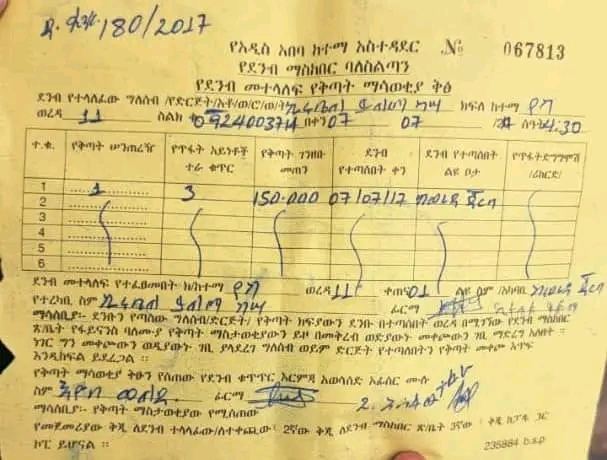 180/2017
የአዲስ አበባ ከተማ አስተዳደር № 067813
የደንብ ማስከበር ባለስልጣን
የደንብ መተላለፍ የቅጣት ማሳወቂያ ቅፅ
ደንብ የተላለፈው ግለሰብ /የድርጅት/አቶ/ወ/ሮ/ወ/ት/ ክፍለ ከተማ የካ
ወረዳ 11 ስልክ ቁ 0924003714 በቀን 07 07 ሰዓት 4:30
ተ.ቁ. የቅጣት ሠንጠረዥ የጥፋት አይነቶች ተራ ቁጥር የቅጣት ገንዘቡ መጠን ደንብ የተጣሰበት ቀን ደንብ የተጣሰበት ልዩ ቦታ የጥፋት ድግግሞሽ /ሪከርድ/
1 1 3 150.000 07/07/17
2
3
4
5
6
ደንብ መተላለፍ የተፈፀመበት ክ/ከተማ የካ ወረዳ 11 ቀጠና 01 ልዩ ስም /አካባቢ
የተረካቢ ስም ፊርማ
ማሳሰቢያ፡- ደንቡን የጣሰው ግለሰብ/ድርጅት/ የቅጣት ክፍያውን ደንቡ በተጣሰበት ወረዳ በሚገኘው የደንብ ማስከበር
ጽ/ቤት የፋይናንስ ባለሙያ የቅጣት ማስታወቂያውን ይዞ በመቅረብ ወድያውኑ መቀጮውን ገቢ ማድረግ አለበት ።
ነገር ግን መቀጮውን ወዲያውኑ ገቢ ያላደረገ ግለሰብ ወይም ድርጅት የተጣለበትን የቅጣት መቀጮ እጥፍ
እንዲከፍል ይደረጋል ።
የቅጣት ማሳወቂያ ቅፁን የሰጠው የደንብ ቁጥጥር እርምጃ አወሳሰድ ኦፊሰር ሙሉ
ስም ፊርማ 2.
ማሳሰቢያ፡- የቅጣት ማስታወቂያው የሚሰጠው
የመጀመሪያው ቅጂ ለደንብ ተላላፊው/ለተቀጪው፣ 2ኛው ቅጂ ለደንብ ማስከበር ጽ/ቤት 3ኛው ፣ ቅጂ ከፓዱ ጋር
ኮፒ ይሆናል ። 235884